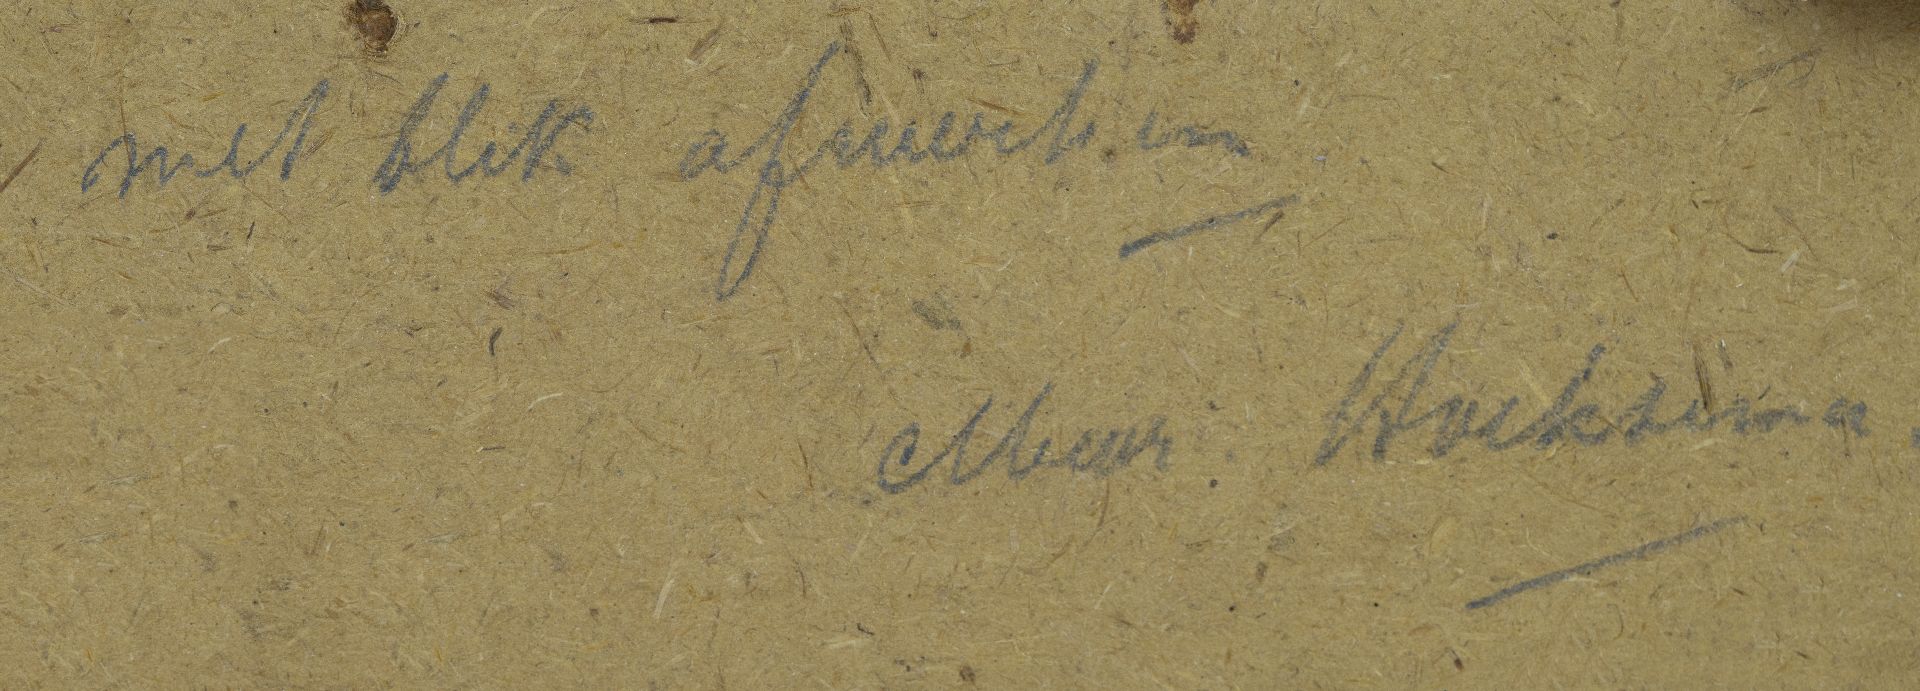 met blik afwerken
Mevr. Hoeksema.